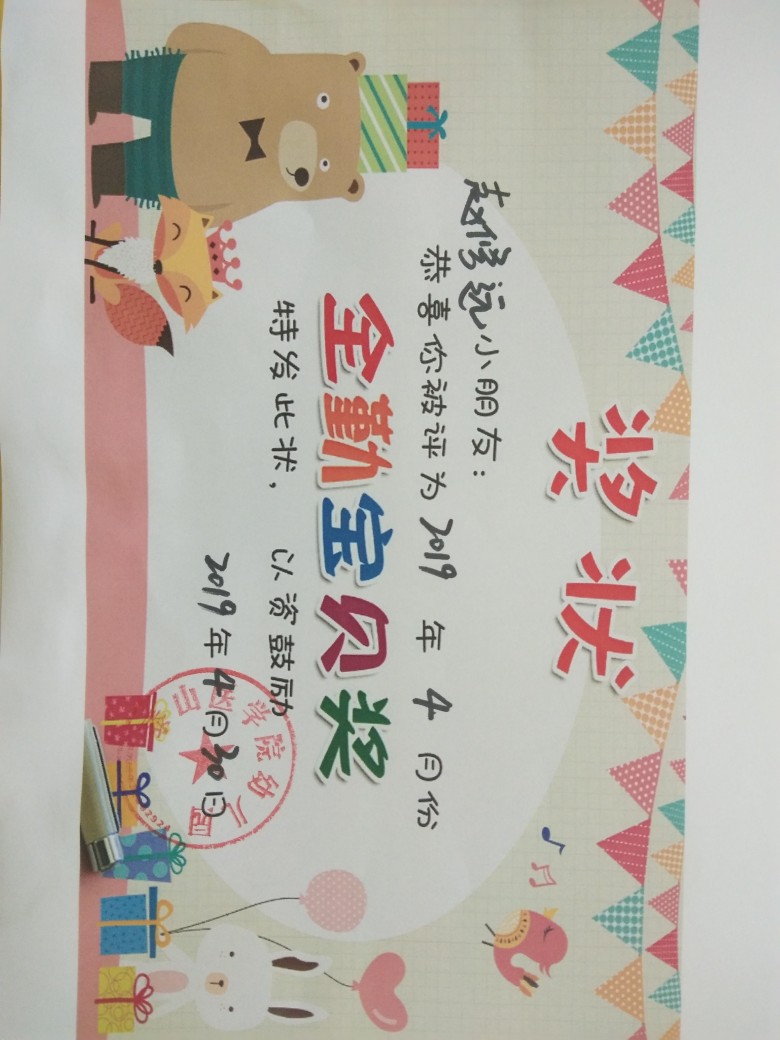 奖状
赵修远小朋友：
恭喜你被评为2019年4月份
全勤宝贝奖
特发此状，以资鼓励
2019年4月30日
学院幼儿园